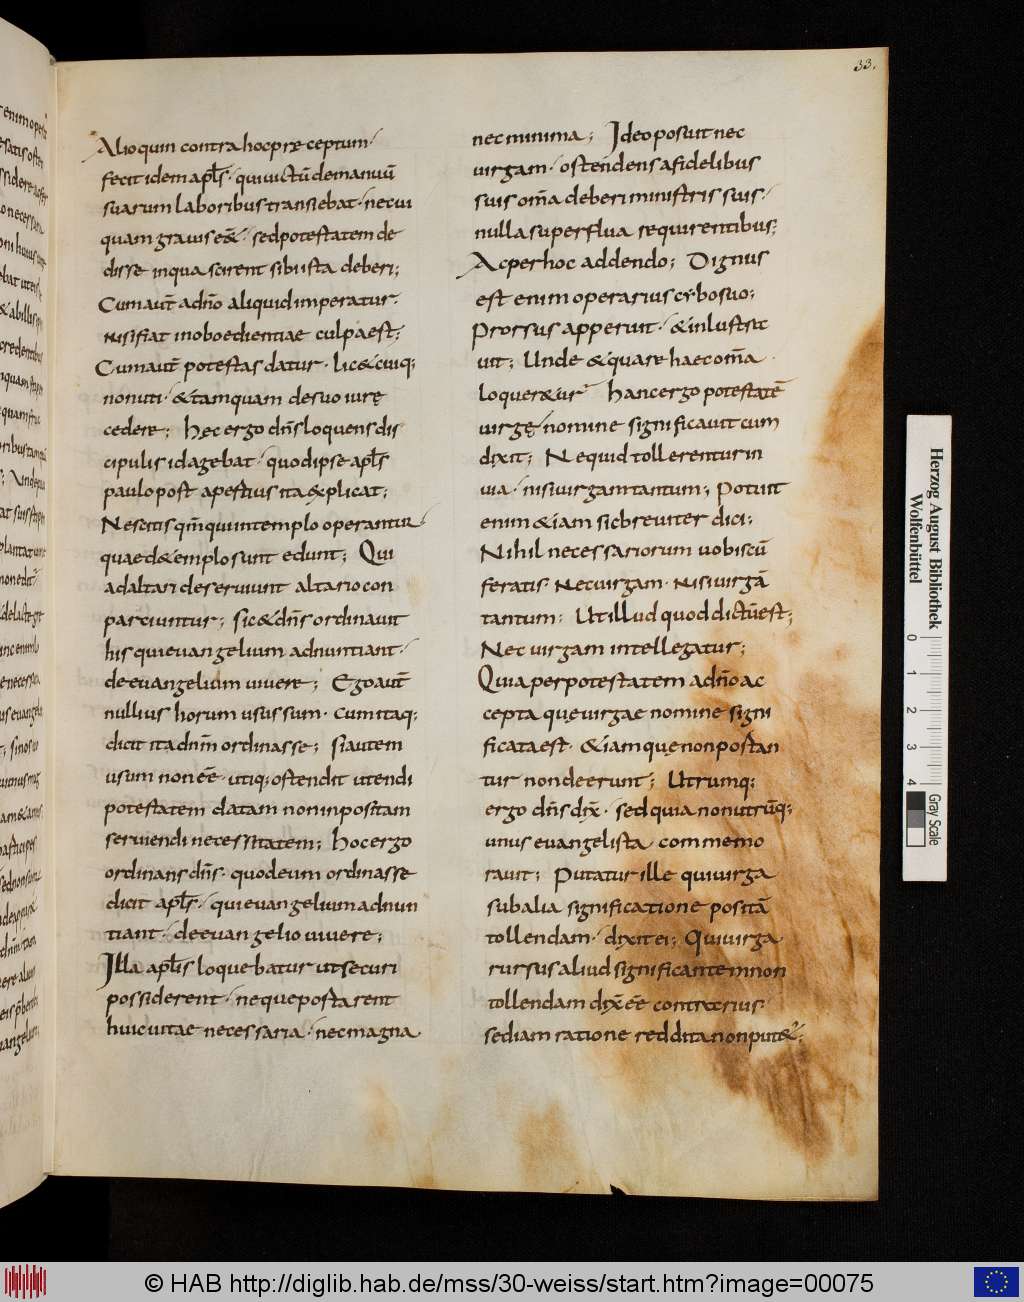 33.
Alioquin contra hoc præceptum·
fecit idem apl̅s· qui uictū demanuū
suarum laboribus transiebat· necui
quam grauis e&· sed potestatem de
disse in qua scirent sibi ista deberi;
Cum aut̅ a dn̅o aliquid imperatur·
nisi fiat inoboedientiae culpa est;
Cum aut̅ potestas datur· lic& cuiq;
non uti· & tamquam de suo iurę
cedere; Hęc ergo dn̅s loquens dis
cipulis id agebat· quod ipse apl̅s
paulo post apertius ita explicat;
Nescitis qm̅ qui in templo operantur·
quae de templo sunt edunt; Qui
ad altari deseruiunt altario con
parciuntur; sic & dn̅s ordinauit
his qui euangelium adnuntiant·
de euangelium uiuere; Ego aut̅
nullius horum usus sum· cum itaq;
dicit ita dnm̅ ordinasse; si autem
usum non eē· utiq; ostendit utendi
potestatem datam non inpositam
seruiendi necessitatem; hoc ergo
ordinans dn̅s· quod eum ordinasse
dicit apl̅s· qui euangelium adnun
tiant· de euangelio uiuere;
Illa apl̅is loquebatur ut securi
possiderent· neque postarent
huic uitae necessaria· nec magna
nec minima; Ideo posuit nec
uirgam· ostendens a fidelibus
suis om̅a deberi ministris suis·
nulla superflua requirentibus;
Ac per hoc addendo; Dignus
est enim operarius cybo suo;
Prorsus apperuit· & inlustra
uit; Unde & quare haec om̅a
loquer&ur Hanc ergo potestatē
uirgę nomine significauit cum
dixit; Ne quid tollerentur in
uia· nisi uirgam tantum; Potuit
enim & iam sic breuiter dici;
Nihil necessariorum uobiscū
feratis· Nec uirgam· nisi uirgā
tantum; Ut illud quod dictū est;
Nec uirgam intellegatur;
Quia per potestatem a dn̅o ac
cepta quę uirgae nomine signi
ficata est· & iam quę non postan
tur non deerunt; Utrumq;
ergo dn̅s dix̅· sed quia non utrūq;
unus euangelista commemo
rauit; Putatur ille qui uirga
sub alia significatione positā
tollendam· dixit ei; Qui uirga
rursus aliud significantem non
tollendam dix̅ eē contrarius·
sed iam ratione reddita non put&ur;
Herzog August Bibliothek
Wolfenbüttel
0 1 2 3 4
Gray Scale
© HAB http://diglib.hab.de/mss/30-weiss/start.htm?image=00075